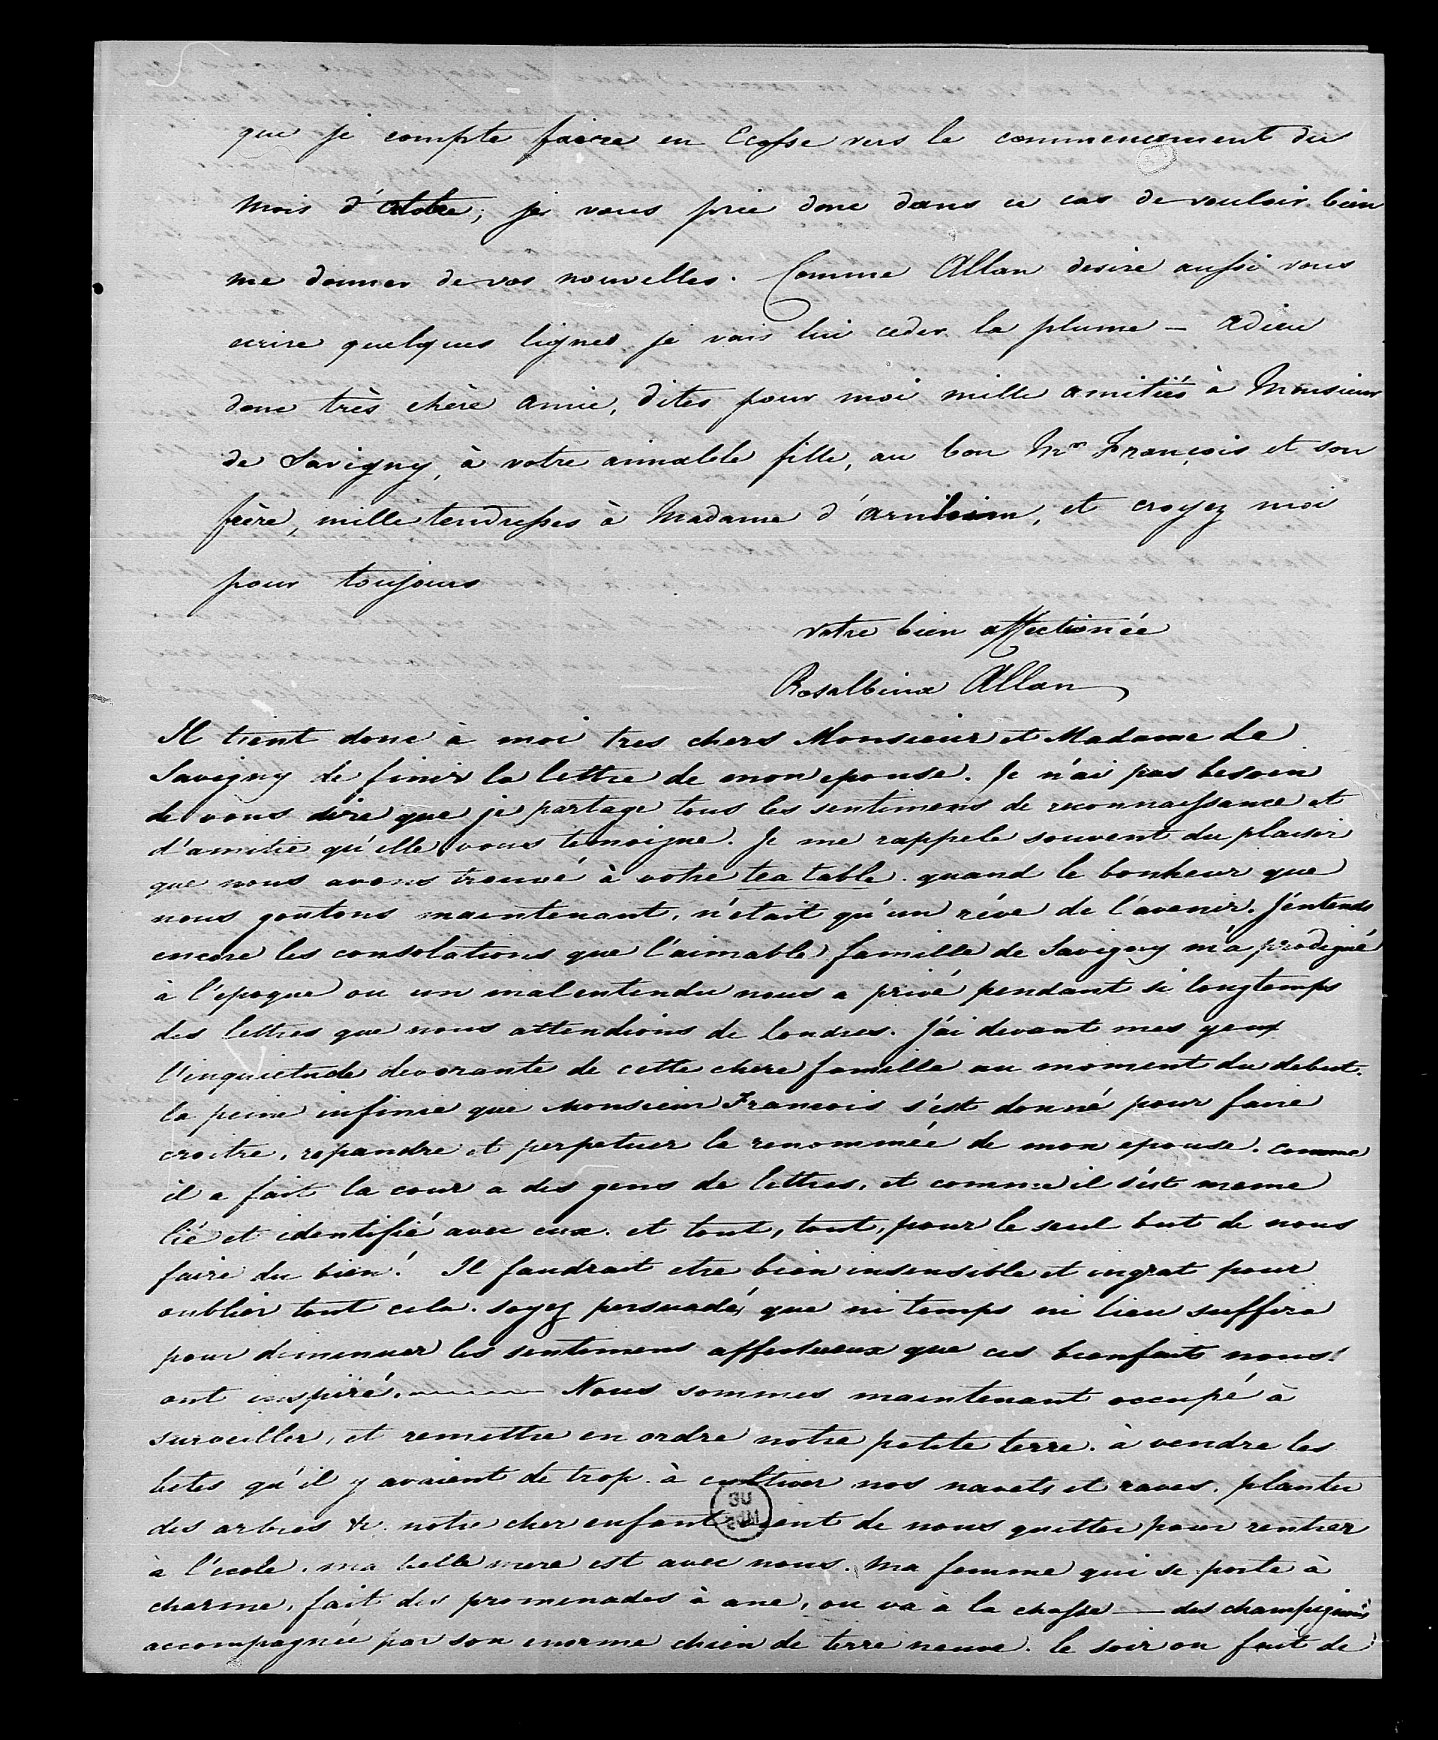 que je compte faire en Ecosse vers le commencement du
mois d'Octobre; je vous prie donc dans ce cas de vouloir bien
me donner de vos nouvelles. Comme Allan desire aussi vous
ecrire quelques lignes je vais lui ceder la plume – adieu
donc très chère amie, dites pour moi mille amitiés à Monsieur
de Savigny, à votre aimable fille, au bon Mr François et son
frère, mille tendresses à Madame d'Arnim, et croyez moi
pour toujours
votre bien affectionée
Rosalbina Allan
Il tient donc à moi tres chers Monsieur et Madame de
Savigny de finir la lettre de mon epouse. Je n'ai pas besoin
de vous dire que je partage tous les sentimens de reconnaissance et
d'amitie qu'elle vous temoigne. Je me rappele souvent du plaisir
que nous avons trouvé à votre tea table. quand le bonheur que
nous goutons maintenant, n'etait qu'un réve de l'avenir. J'entends
encore les consolations que l'aimable famille de Savigny m'a prodigué
à l'epoque ou un malentendu nous a privé pendant si longtemps
des lettres que nous attendions de Londres. J'ai devant mes yeux
l'inquietude devorante de cette chere famille au moment du debut.
la peine infinie que Monsieur Francois s'est donné pour faire
croitre, repandre et perpetuer la renommée de mon epouse. comme
il a fait la cour a des gens de lettres, et comme il s'est meme
lié et identifié avec eux. et tout, tout, pour le seul but de nous
faire du bien! Il faudrait etre bien insensible et ingrat pour
oublier tout cela. soyez persuadé, que ni temps ni lieu suffira
pour diminuer les sentimens affectueux que ces bienfaits nous
ont inspiré. —— Nous sommes maintenant occupé à
surveiller, et remettre en ordre notre petite terre. à vendre les
betes qu'il y avaient de trop. à cultiver nos navets et raves. planter
des arbres &c. notre cher enfant vient de nous quitter pour rentrer
à l'école. ma belle mere est avec nous. Ma femme qui se porte à
charme, fait des promenades à ane, ou va à la chasse — des champignons
accompagnée par son enorme chien de terre neuve. le soir on fait de